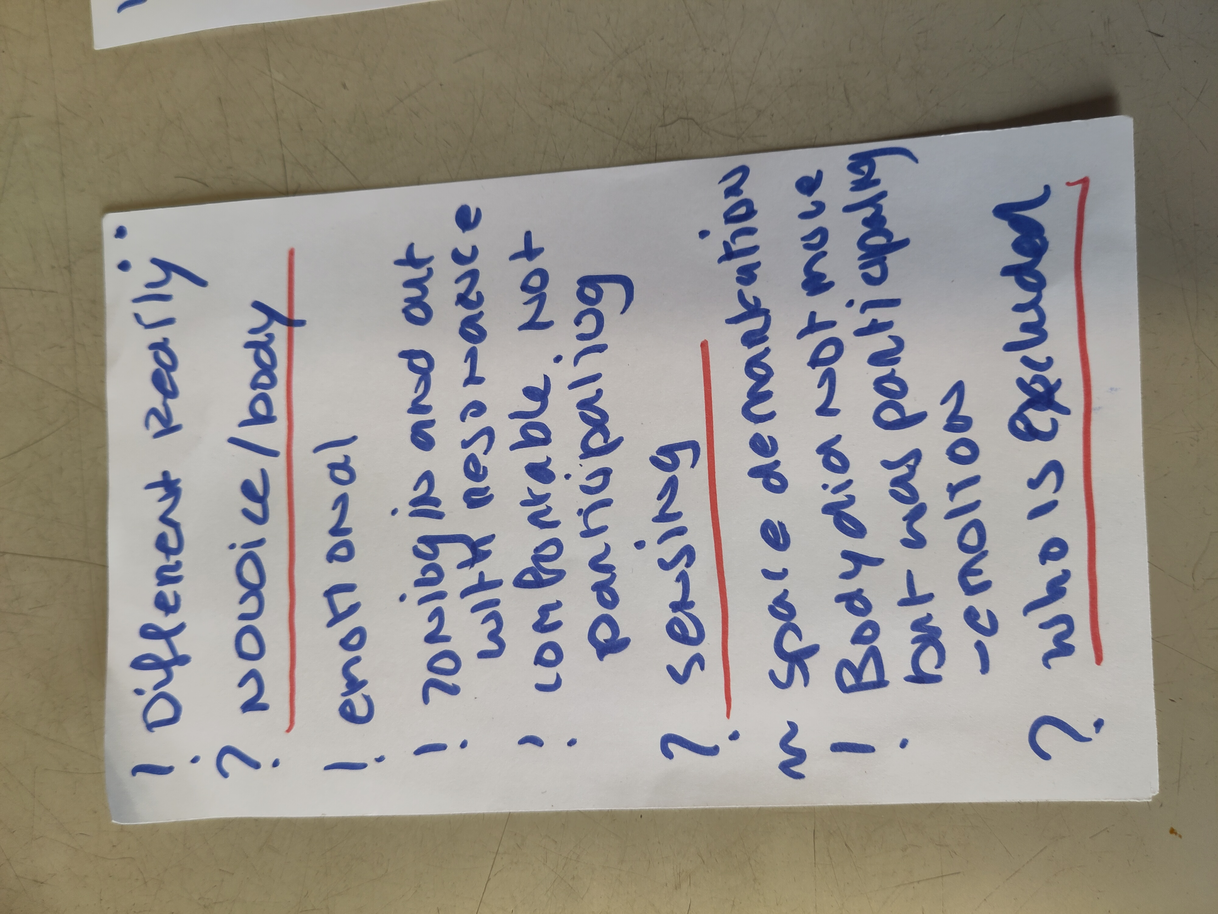 ! Different Really
? NOVOICE/body
! emotional
! zoning in and out
with resonance
! comfortable not
participating
? sensing
~ space demarkation
! Body did not move
but was participating
-emotion
? who is excluded